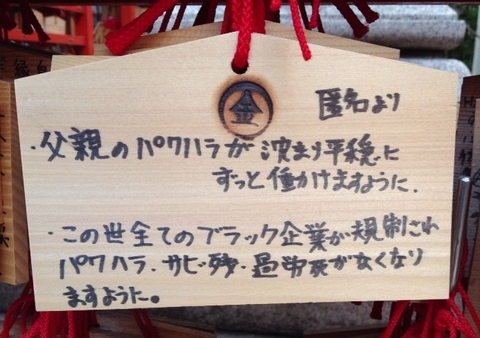 金
匿名より
・父親のパワハラが沈まり平穏に
ずっと働かけますように.
・この世全てのブラック企業が規制され
パワハラ・サビ残・過労死がなくなり
ますように。